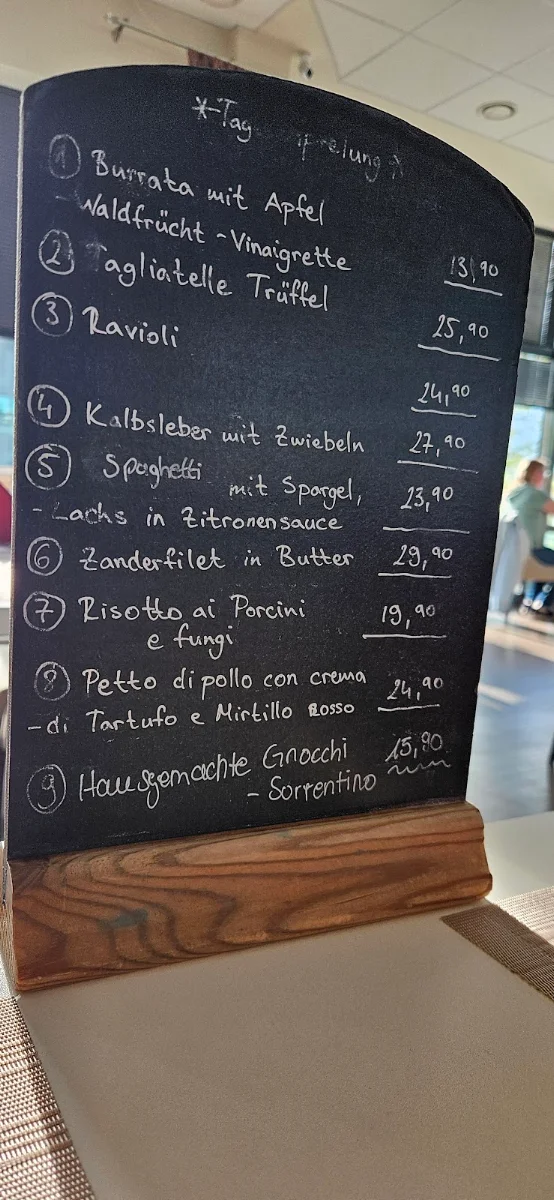 *-Tag
① Burrata mit Apfel
- Waldfrücht - Vinaigrette 13,90
② Tagliatelle Trüffel 25,90
③ Ravioli 24,90
④ Kalbsleber mit Zwiebeln 27,90
⑤ Spaghetti mit Spargel, 23,90
- Lachs in Zitronensauce
⑥ Zanderfilet in Butter 29,90
⑦ Risotto ai Porcini 19,90
e fungi
⑧ Petto di pollo con crema 24,90
- di Tartufo e Mirtillo Rosso
⑨ Hausgemachte Gnocchi 15,90
- Sorrentino